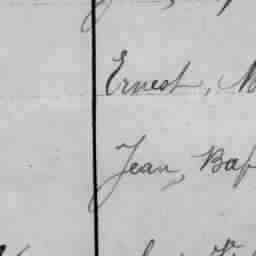 Ernest, M
Jean, Bap